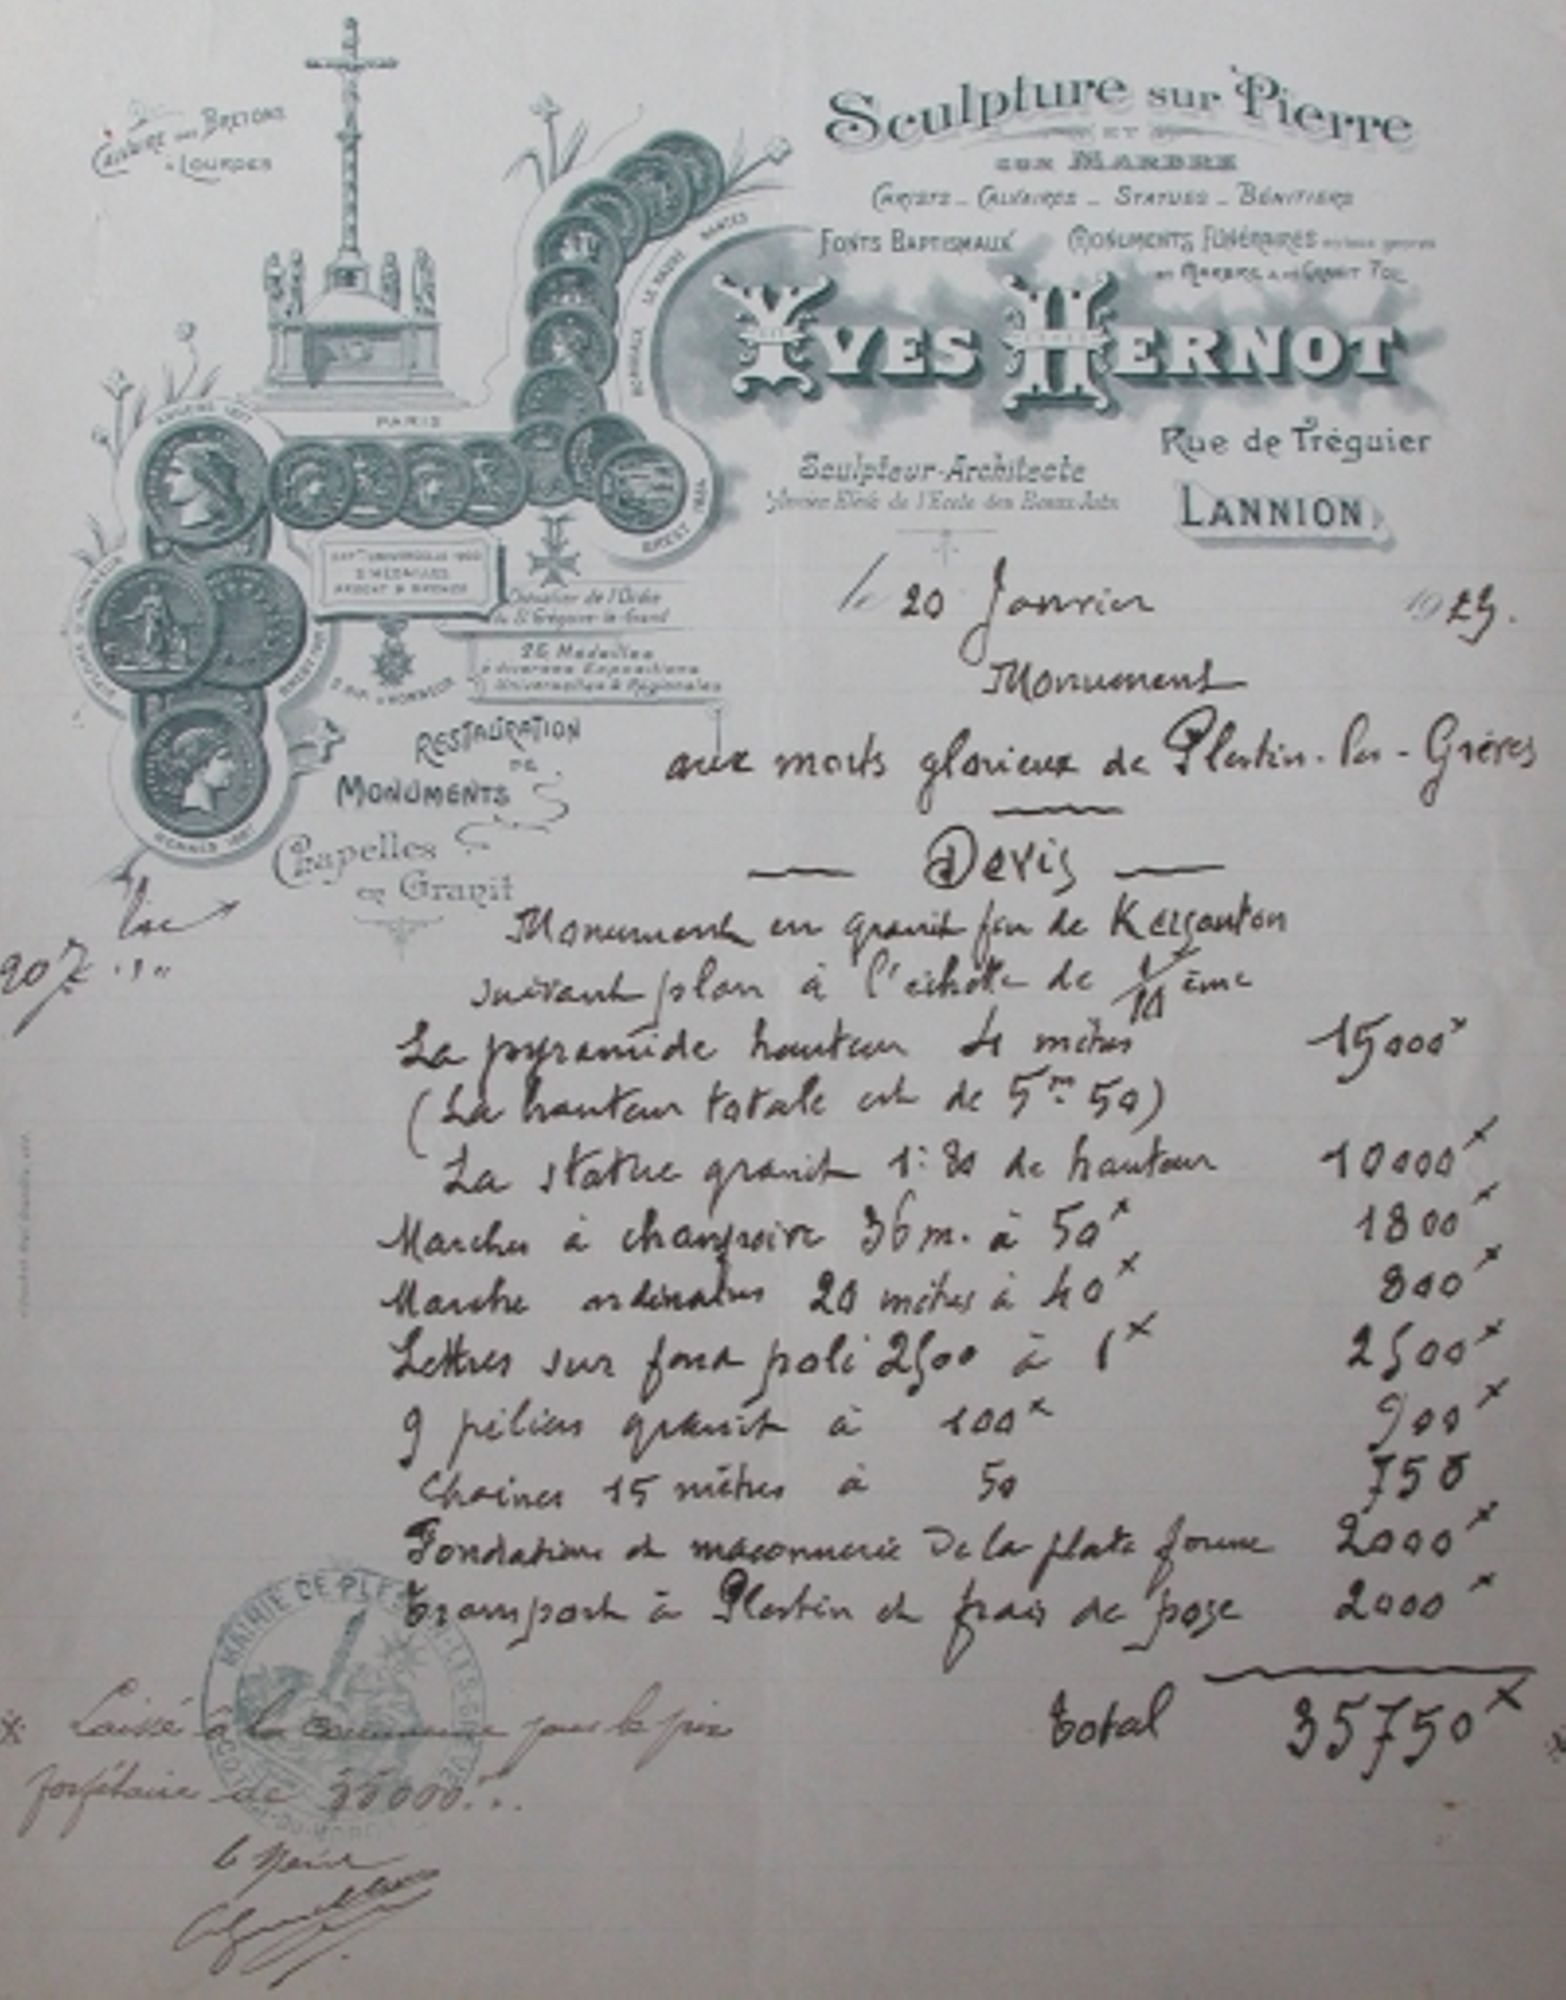 Calvaire des Bretons
à Lourdes
Sculpture sur Pierre
ET
sur Marbre
Christs _ Calvaires _ Statues _ Bénitiers
Fonts Baptismaux Monuments Funéraires en tous genres
en Marbre & en Granit Poli
Yves Hernot
Rue de Tréguier
Sculpteur-Architecte
Ancien Elève de l'Ecole des Beaux-Arts
Lannion
PARIS
NANTES
LE HAVRE
BORDEAUX
BREST
RENNES 1887
EXP.on UNIVERSELLE 1900
2 MÉDAILLES
ARGENT & BRONZE
Chevalier de l'Ordre
de St Grégoire-le-Grand
25 Médailles
à diverses Expositions
Universelles & Régionales
Restauration
de
Monuments
Chapelles
en Granit
le 20 Janvier 1923.
Monument
aux morts glorieux de Plestin-les-Grèves
Devis
Monument en granit fin de Kersanton
suivant plan à l'échelle de 1/10 ème
La pyramide hauteur 4 mètres 15000 x
(La hauteur totale est de 5 m. 50)
La statue granit 1: 80 de hauteur 10000 x
Marches à chanfreins 36 m. à 50 x 1800 x
Marche ordinaires 20 mètres à 40 x 800 x
Lettres sur fond poli 2500 à 1 x 2500 x
9 piliers granit à 100 x 900 x
Chaines 15 mètres à 50 750
Fondations et maçonnerie de la plate forme 2000 x
Transport à Plestin et frais de pose 2000 x
total 35750 x
MAIRIE DE PLESTIN-LES-GRÈVES
x Laissé à la commune pour le prix
forfétaire de 35000...
le Maire